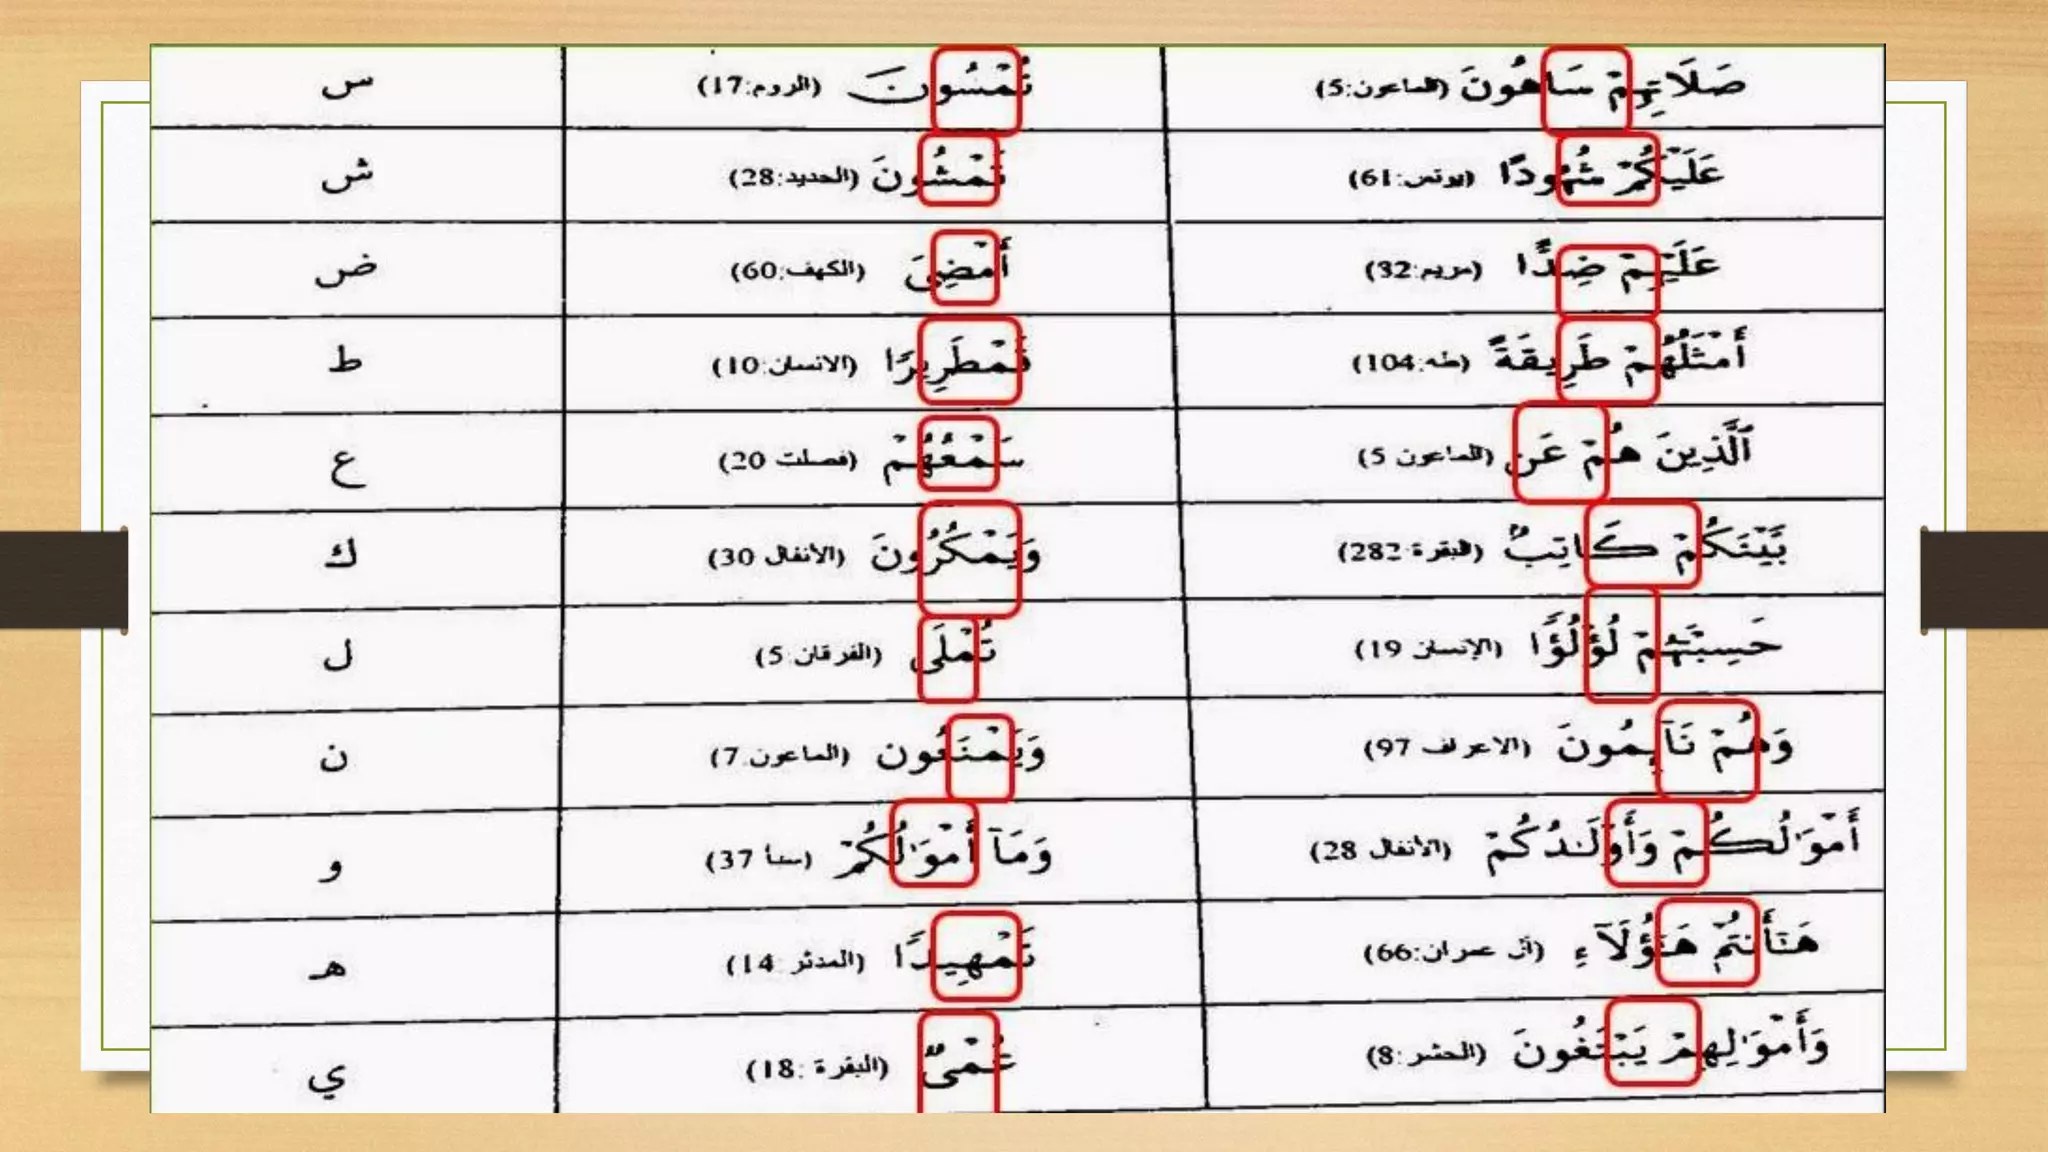 صَلَاتِهِمْ سَاهُونَ (الماعون:5) تُمْسُونَ (الروم:17) س
عَلَيْكُمْ شُهُودًا (يونس:61) تَمْشُونَ (الحديد:28) ش
عَلَيْهِمْ ضِدًّا (مريم:82) أَمْضِىَ (الكهف:60) ض
أَمْثَلُهُمْ طَرِيقَةً (طه:104) قَمْطَرِيرًا (الانسان:10) ط
ٱلَّذِينَ هُمْ عَن (الماعون 5) سَمْعُهُمْ (فصلت 20) ع
بَّيْنَكُمْ كَاتِبٌ (البقرة 282) وَيَمْكُرُونَ (الأنفال 30) ك
حَسِبْتَهُمْ لُؤْلُؤًا (الإنسان 19) تُمْلَى (الفرقان 5) ل
وَهُمْ نَآئِمُونَ (الاعراف 97) وَيَمْنَعُون (الماعون 7) ن
أَمْوَٰلُكُمْ وَأَوْلَٰدُكُمْ (الأنفال 28) وَمَآ أَمْوَٰلُكُمْ (سبأ 37) و
هَٰٓأَنتُمْ هَٰٓؤُلَآءِ (آل عمران:66) تَمْهِيدًا (المدثر 14) هـ
وَأَمْوَٰلِهِمْ يَبْتَغُونَ (الحشر:8) عُمْىٌ (البقرة :18) ي